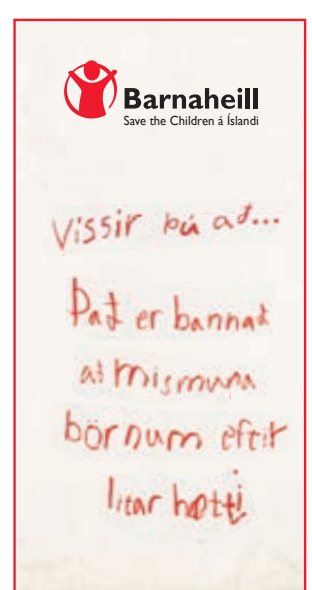 Barnaheill
Save the Children á Íslandi
Vissir þú að...
Það er bannað
að mismuna
börnum eftir
litar hætti